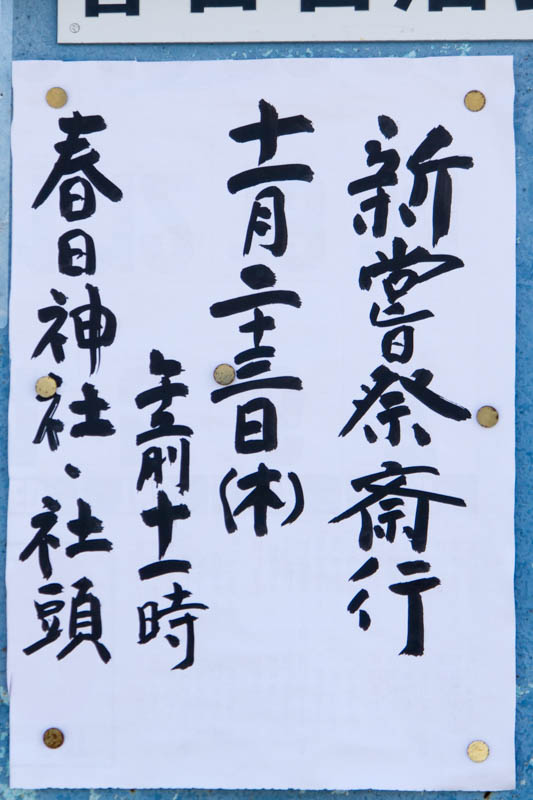 新嘗祭斎行
十一月二十三日(木)
午前十一時
春日神社・社頭